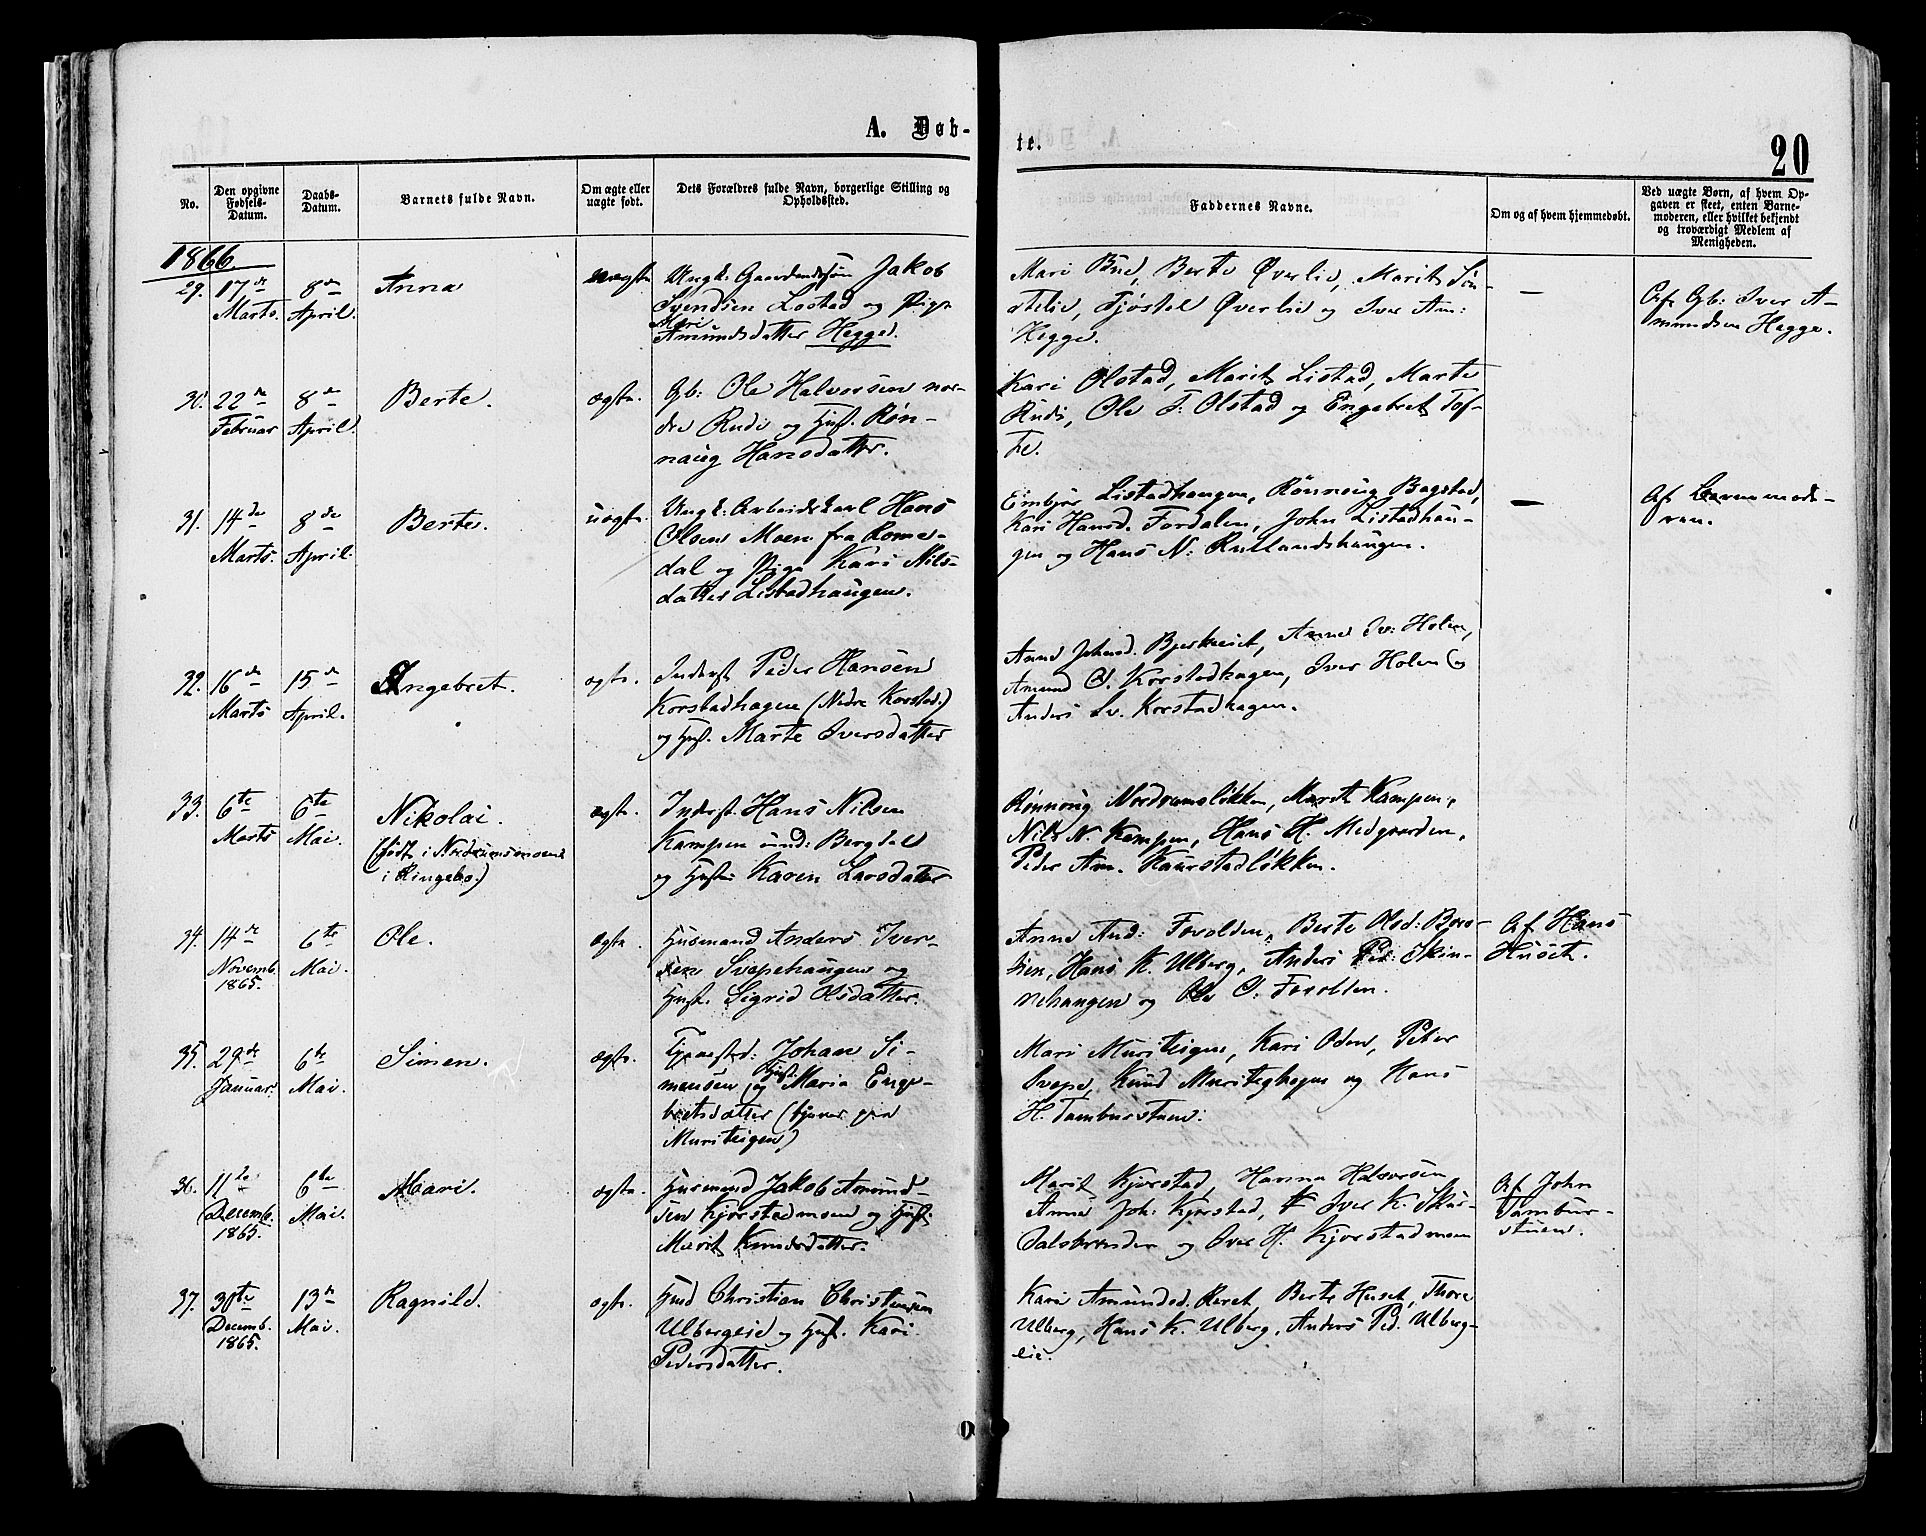 A. Døb-
te.
20
No.
Den opgivne Fødsels-Datum.
Daabs-Datum.
Barnets fulde Navn.
Om ægte eller uægte født.
Dets Forældres fulde Navn, borgerlige Stilling og Opholdssted.
Faddernes Navne.
Om og af hvem hjemmedøbt.
Ved uægte Børn, af hvem Opgaven er skeet, enten Barnemoderen, eller hvilket bekjendt og troværdigt Medlem af Menigheden.
1866.
29. 17de Marts. 8de April. Anna uægte
Ungk: Gaardmandssøn Jakob
Svendsen Lostad og Pige
Mari
Amundsdatter Hegge.
Mari Bue, Berte Øverlie, Marit Søn-
stelie, Fjøstel Øverlie og Iver Am:
Hegge.
—
Af Gb: Iver A-
mundsen Hegge.
30. 22de Februar 8de April. Berte. ægte.
Gb: Ole Halvorsen nor-
dre Rudi og Hust. Røn-
naug Hansdatter.
Kari Olstad, Marit Listad, Marte
Rudi, Ole T. Olstad og Engebret Tof-
te.
31. 14de Marts. 8de April. Berte. uægte.
Ungk: Arbeidskarl Hans
Olsen Moen fra Rome-
dal og Pige Kari Nils-
datter Listadhaugen.
Embjør Listadhaugen, Rønnoug Bagstad,
Kari Hansd. Fordalen, John Listadhau-
gen og Hans N: Rullandshaugen.
—
Af Barnemode-
ren.
32. 16de Marts 15de April. Engebret. ægte.
Inderst Peder Hansen
Korstadhagen (Nedre Korstad.)
og Hust. Marte Iversdatter
Anne Johand. Bjerkeset, Anne Iv: Holen,
Amund O. Korstadhagen, Iver Holen og
Anders Iv. Korstadhagen.
33. 6te Marts 6te Mai. Nikolai. ægte.
(født i Nordrumsmoen
i Ringebo.)
Inderst. Hans Nilsen
Kampen und: Bergdal
og Hustr: Karen Larsdatter
Rønnoug Nordrumsløkken, Marit Kampen,
Nils N. Kampen, Hans H. Medgaarden,
Peder Am. Kaurstadløkken.
34. 14de Novemb. 1865. 6te Mai. Ole. ægte
Husmand Anders Iver-
sen Svepehaugen og
Hust. Sigrid Olsdatter.
Anne And: Forolden, Berte Olsd:
Hans K. Ulberg, Anders Ped: Skin-
nehaugen og Ole I. Forolden.
Af Hans
Huset.
35. 29de Januar. 6te Mai. Simen. ægte.
Tjenested: Johan Si-
mensen og Hust. Maria Enge-
bretsdatter (tjener paa
Muriteigen)
Mari Muriteigen, Kari Oden, Peter
Svepe, Knud Muriteighagen og Hans
H. Tamburstuen:
36. 11te Decemb. 1865. 6te Mai. Mari. ægte.
Husmand Jakob Amund-
sen Kjorstadmoen og Hust
Marit Knudsdatter.
Marit Kjorstad, Hanna Halvorsen
Anne Joh: Kjorstad, Iver K. Skur-
dalsbrænden og Iver H. Kjorstadmoen
Af John
Tambur-
stuen.
37. 30te Decemb. 1865. 13de Mai. Ragnild. ægte.
Husd Christian Christensen
Ulberglie og Hust. Kari
Pedersdatter.
Kari Amundsd. Reret, Berte Huset, Thore
Ulberg, Hans K. Ulberg, Anders Ped. Ulberg-
lie.